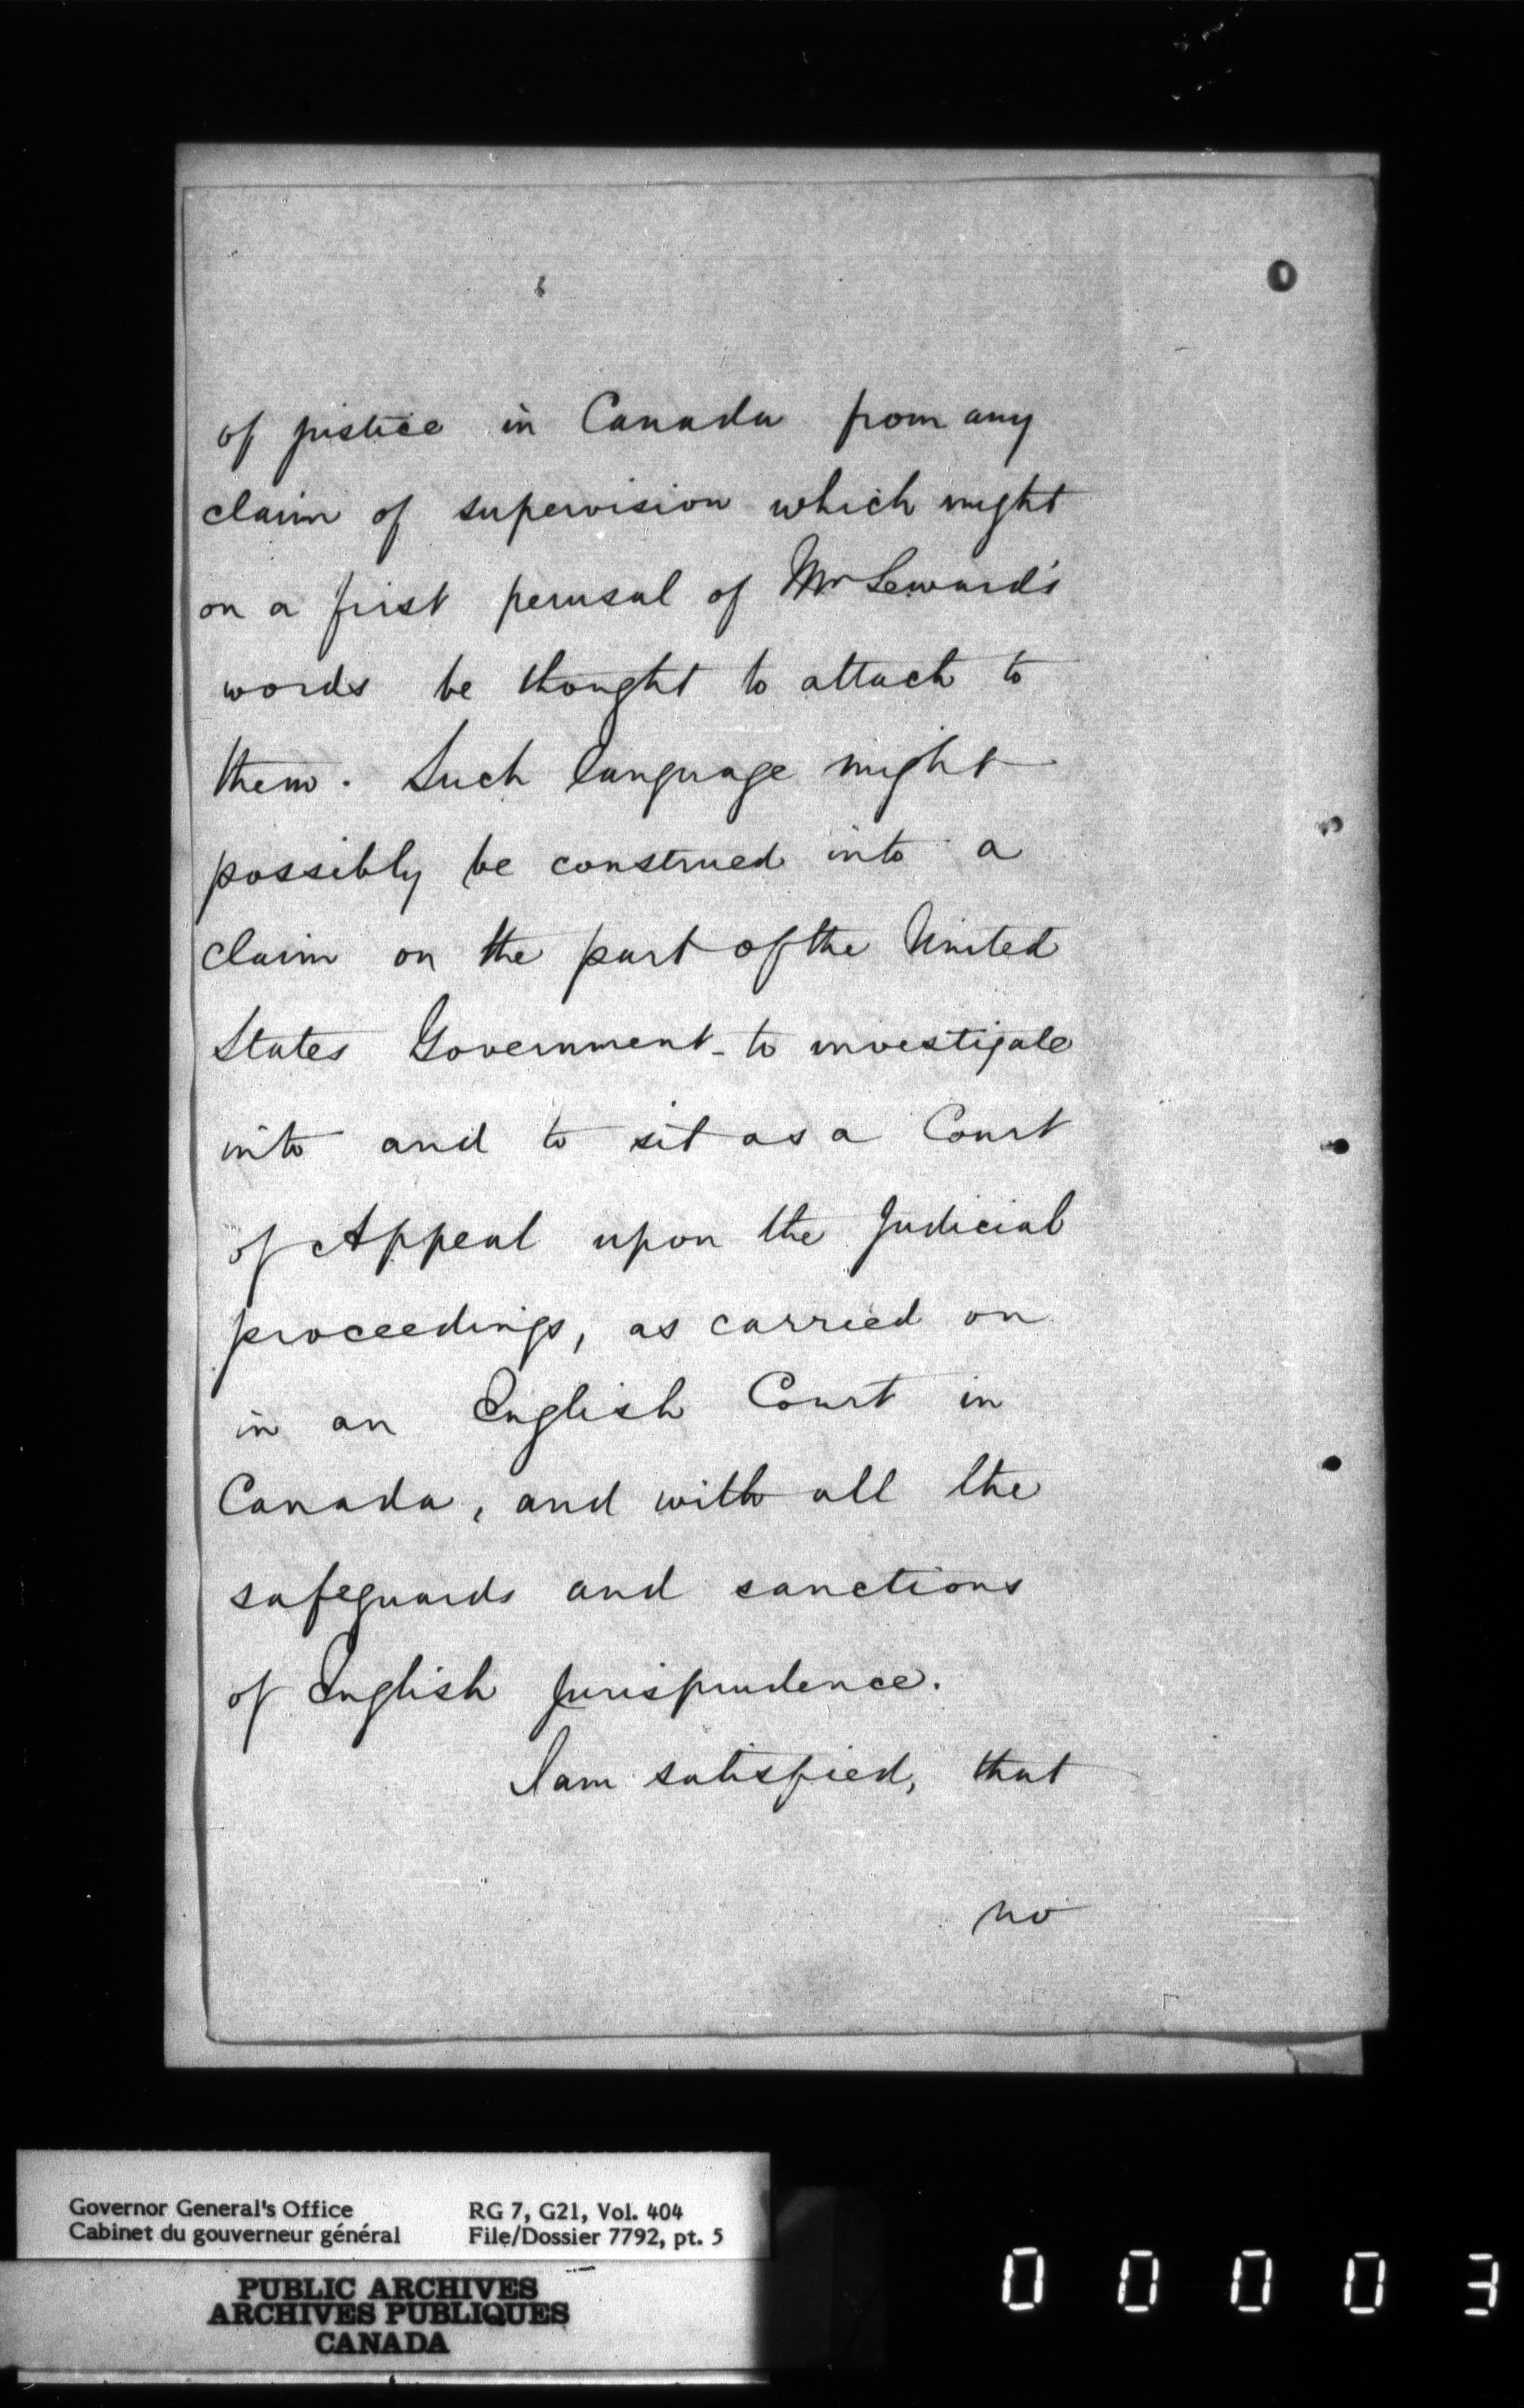 of justice in Canada from any
claim of supervision which might
on a first perusal of Mr Seward's
words be thought to attach to
them. Such language might
possibly be construed into a
claim on the part of the United
States Government - to investigate
into and to sit as a Court
of Appeal upon the Judicial
proceedings, as carried on
in an English Court in
Canada, and with all the
safeguards and sanctions
of English Jurisprudence.
I am satisfied, that
no
Governor General's Office
Cabinet du gouverneur général
RG 7, G21, Vol. 404
File/Dossier 7792, pt. 5
PUBLIC ARCHIVES
ARCHIVES PUBLIQUES
CANADA
0 0 0 0 3